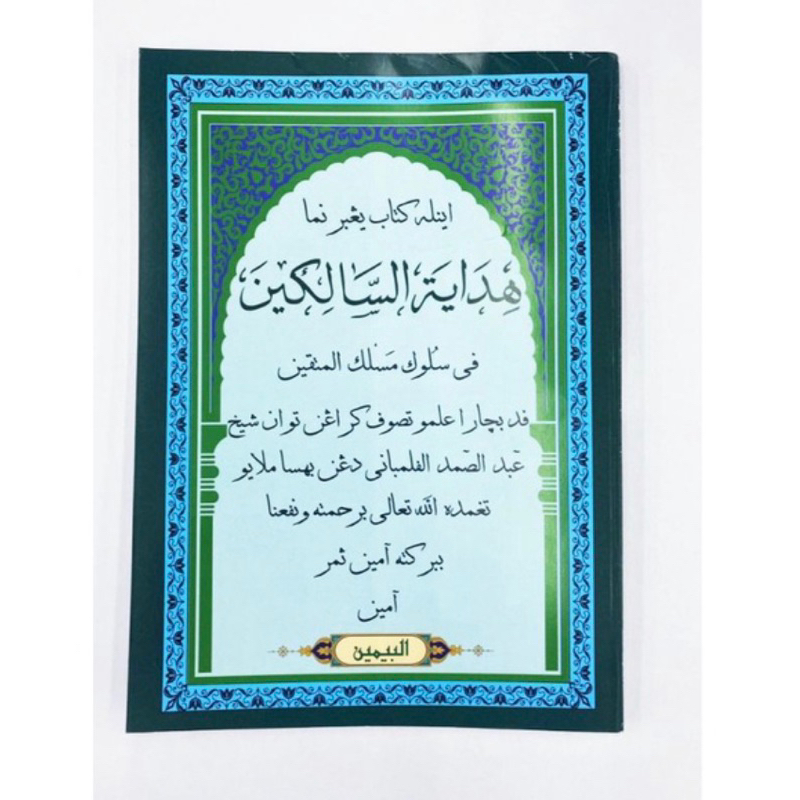 اينله كتاب يڠبر نما
هِدَايَة السَّالِكِينَ
في سُلُوك مَسْلَك المتقين
فد بچارا علمو تصوف كراڠن توان شيخ
عبد الصّمد الفلمباني دڠن بهسا ملايو
تغمده الله تعالى برحمته ونفعنا
ببركته آمين ثمر
آمين
البيمين